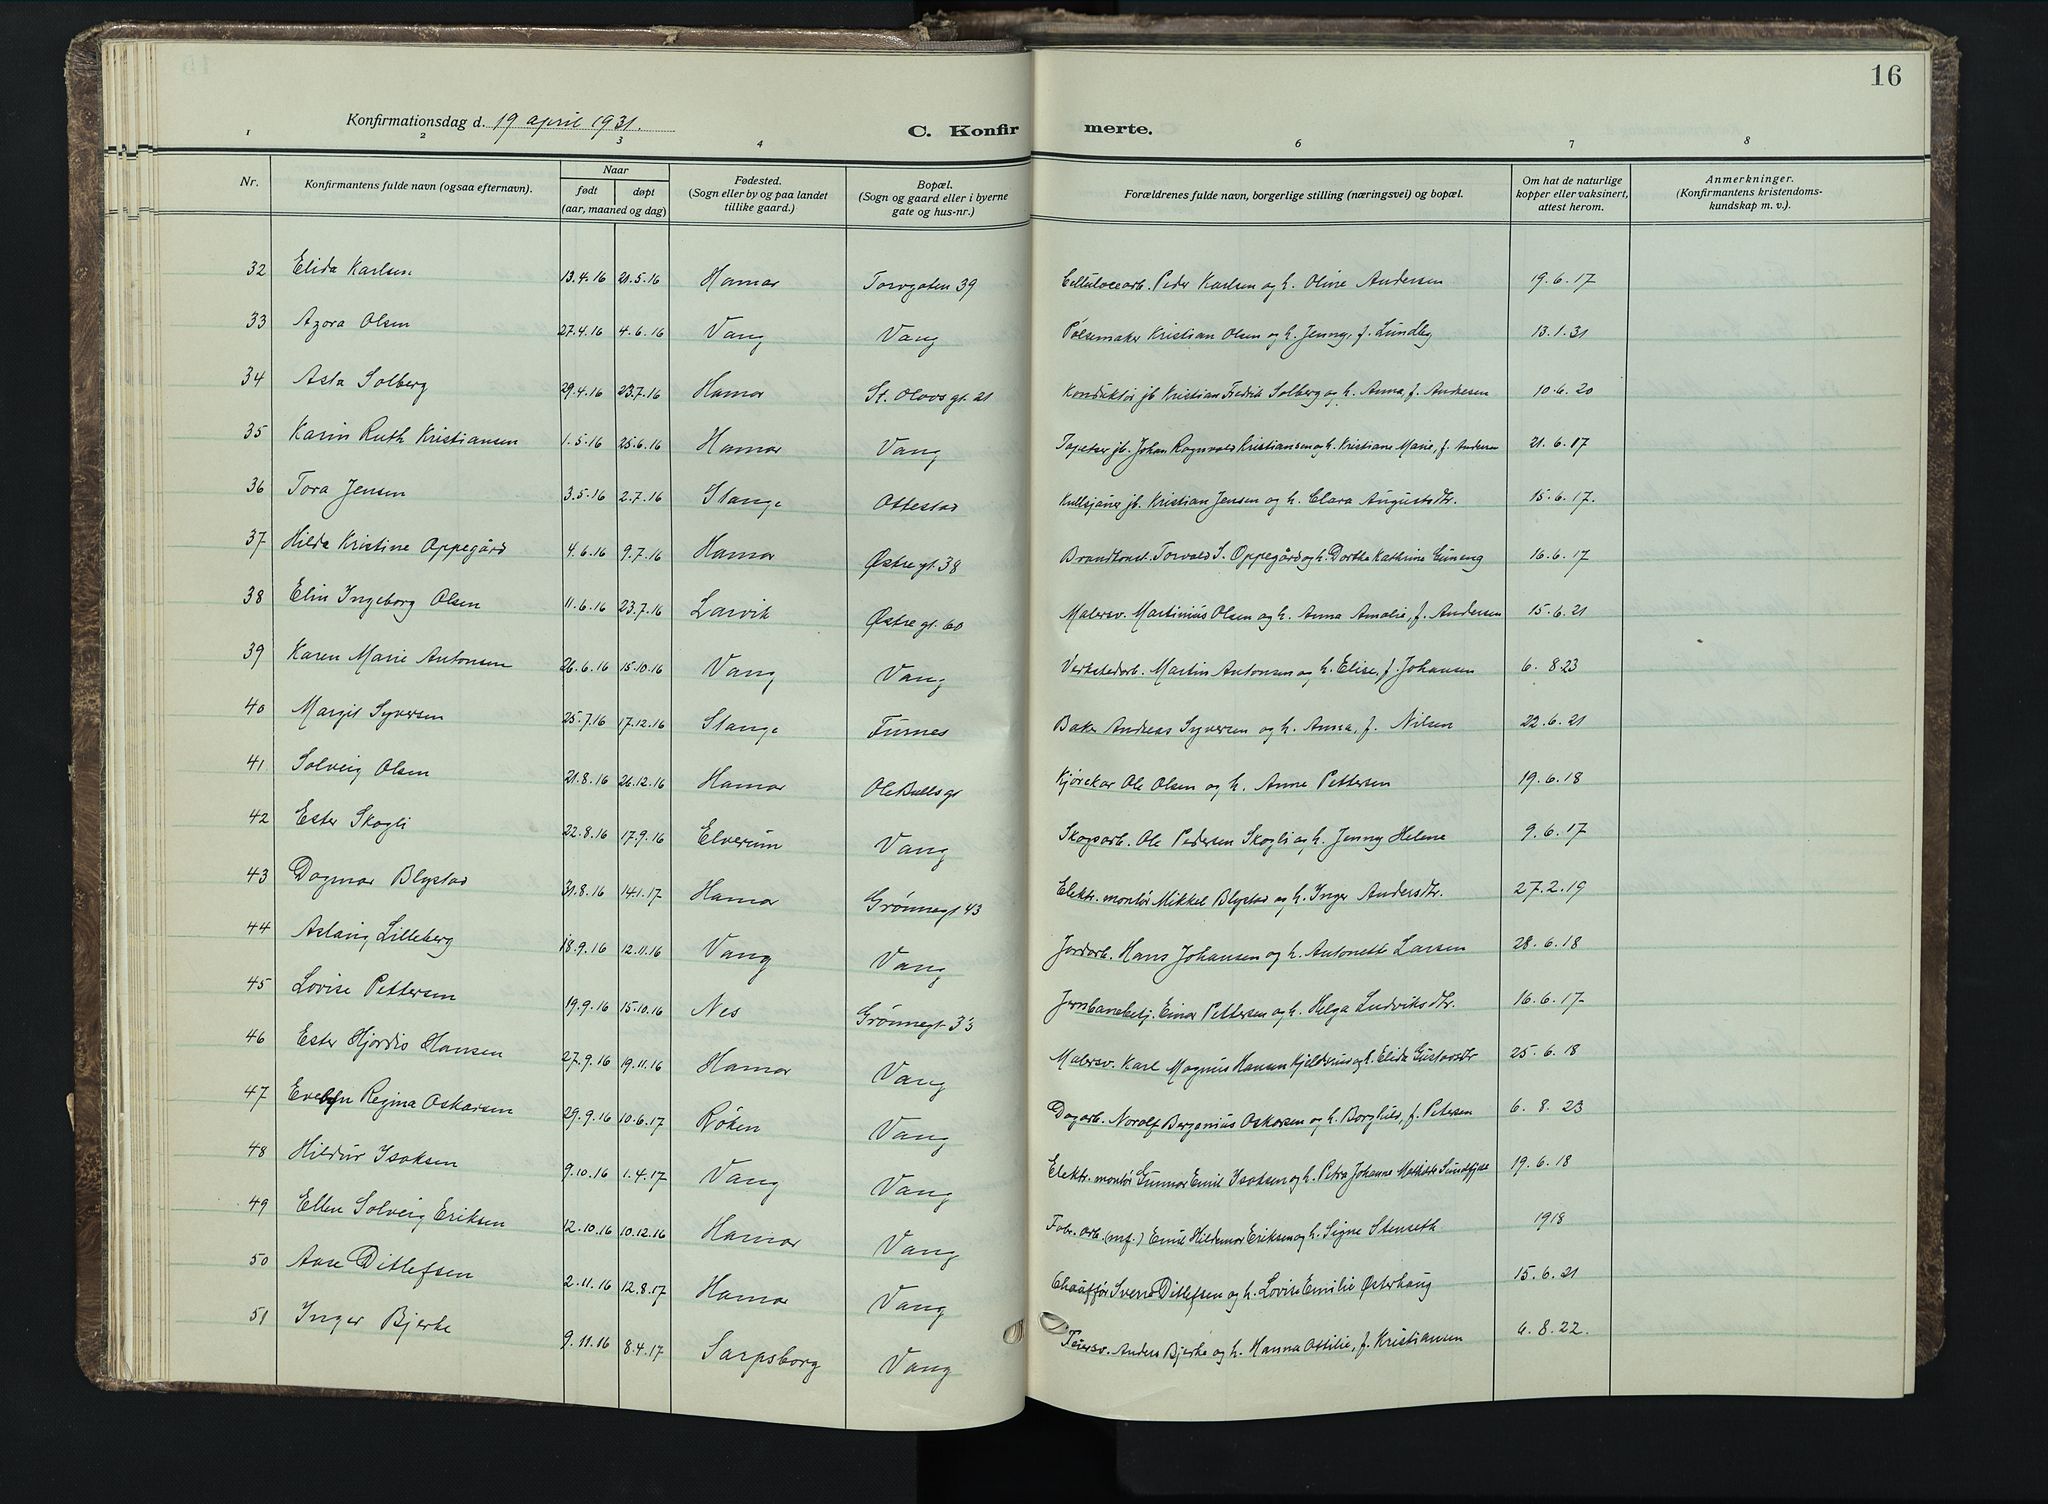 16
Konfirmationsdag d. 19 april 1931.
C. Konfirmerte.
1 2 3 4 6 7 8
Nr. Konfirmantens fulde navn (ogsaa efternavn). Naar født døpt (aar, maaned og dag) Fødested. (Sogn eller by og paa landet tillike gaard.) Bopæl. (Sogn og gaard eller i byerne gate og hus-nr.) Forældrenes fulde navn, borgerlige stilling (næringsvei) og bopæl. Om hat de naturlige kopper eller vaksinert, attest herom. Anmerkninger. (Konfirmantens kristendomskundskap m. v.).
32 Elida Karlsen 13.4.16 21.5.16 Hamar Torvgaten 39 Cellulosearb. Peder Karlsen og h. Oline Andersen 19.6.17
33 Azora Olsen 27.4.16 4.6.16 Vang Vang Pølsemaker Kristian Olsen og h. Jenny, f. Lundby 13.1.31
34 Asta Solberg 29.4.16 23.7.16 Hamar St. Olavs gt. 21 Konduktør jb Kristian Fredrik Solberg og h. Anna, f. Andresen 10.6.20
35 Karin Ruth Kristiansen 1.5.16 25.6.16 Hamar Vang Tapetser jb. Johan Ragnvald Kristiansen og h. Kristiane Marie, f. Andersen 21.6.17
36 Tora Jensen 3.5.16 2.7.16 Stange Ottestad Kullsjauer jb. Kristian Jensen og h. Clara Augustsdtr. 15.6.17.
37 Hilda Kristine Oppegård 4.6.16 9.7.16 Hamar Østre gt. 38 Brandkonst. Torvald S. Oppegård og h. Dorthe Kathrine 16.6.17
38 Elin Ingeborg Olsen 11.6.16 23.7.16 Larvik Østre gt. 60 Malersv. Martinius Olsen og h. Anna Amalie, f. Andersen 15.6.21
39 Karen Marie Antonsen 26.6.16 15.10.16 Vang Vang Verkstedarb. Martin Antonsen og h. Elise, f. Johansen 6.8.23
40 Margit Syversen 25.7.16 17.12.16 Stange Furnes Baker Andreas Syversen og h. Anna, f. Nilsen 22.6.21
41 Solveig Olsen 21.8.16 26.12.16 Hamar Ole Bulls gt Kjørekar Ole Olsen og h. Anne Pettersen 19.6.18
42 Ester Skogli 22.8.16 17.9.16 Elverum Vang Skogsarb. Ole Pedersen Skogli og h. Jenny Helene 9.6.17
43 Dagmar Blystad 31.8.16 14.1.17 Hamar Grønnegt 43 Elektr. montør Mikkel Blystad og h. Inger Andersdtr. 27.2.19
44 Aslaug Lilleberg 18.9.16 12.11.16 Vang Vang Jordarb. Hans Johansen og h. Antonette Larsen 28.6.18
45 Lovise Pettersen 19.9.16 15.10.16 Nes Grønnegt. 33 Jernbanebetj. Einar Pettersen og h. Helga Ludviksdtr. 16.6.17
46 Ester Hjørdis Hansen 27.9.16 19.11.16 Hamar Vang Malersv. Karl Magnus Hansen Kjeldsrud og h. Elida Gustavsdtr 25.6.18
47 Evelyn Regina Oskarsen 29.9.16 10.6.17 Røken Vang Dagarb. Norolf Berganius Oskarsen og h. Borghild, f. Petersen 6.8.23
48 Hildur Isaksen 9.10.16 1.4.17 Vang Vang Elektr. montør Gunnar Emil Isaksen og h. Petra Johanne Mathilde 19.6.18
49 Ellen Solveig Eriksen 12.10.16 10.12.16 Hamar Vang Fabr. arb. (mf.) Emil Hildemar Eriksen og h. Signe Stenseth 1918
50 Aase Ditlefsen 2.11.16 12.8.17 Hamar Vang Chauffør Sverre Ditlefsen og h. Lovise Emilie Østerhaug 15.6.21
51 Inger Bjerke 9.11.16 8.4.17 Sarpsborg Vang Anders Bjerke og h. Hanna Ottilie, f. Kristiansen 6.8.22.